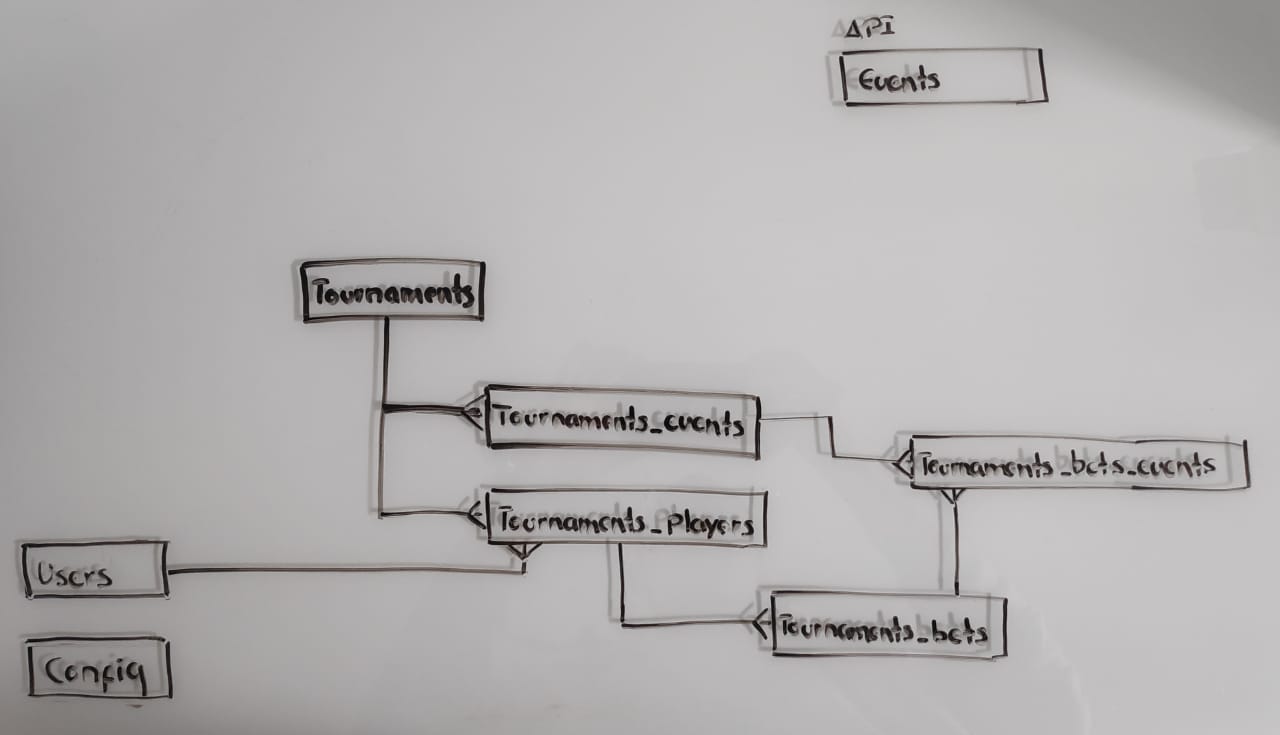 API
Events
Tournaments
Tournaments_events
Tournaments_bets_events
Tournaments_Players
Users
Tournaments_bets
Config